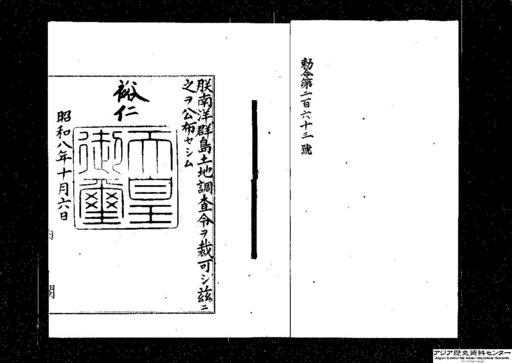 勅令第二百六十三號
朕南洋群島土地調査令ヲ裁可シ茲ニ
之ヲ公布セシム
裕仁
天皇御璽
昭和八年十月六日
内 閣
アジア歴史資料センター
Japan Center for Asian Historical Records